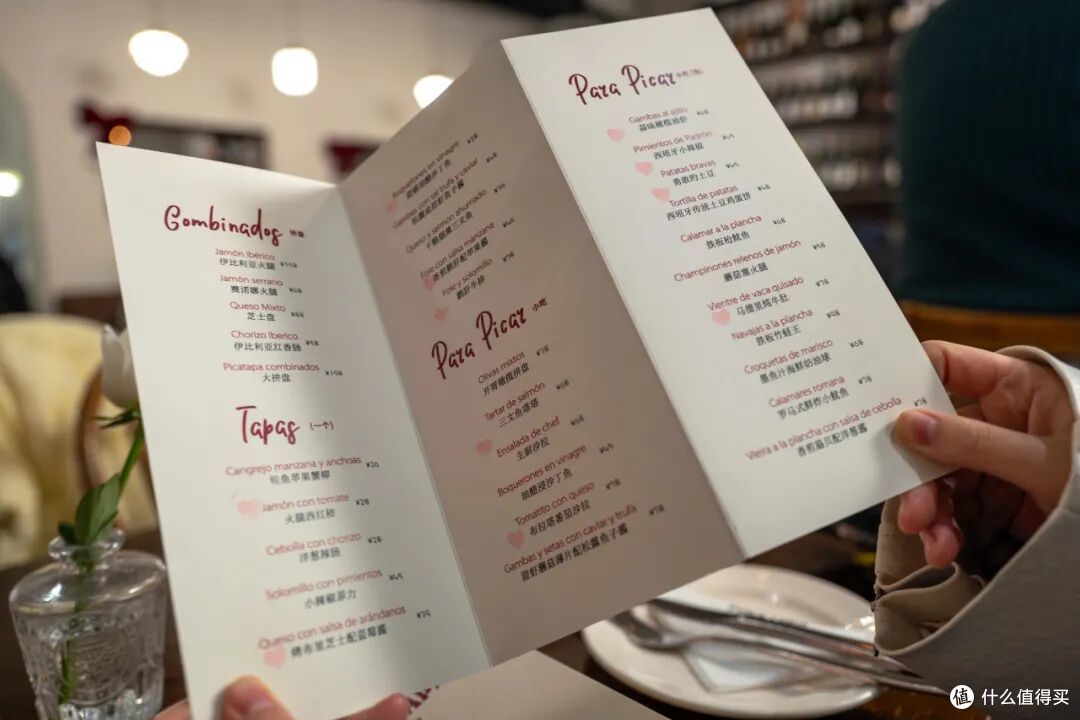 Combinados 拼盘
Jamón Iberico
伊比利亚火腿
Jamón serrano
赛诺娜火腿 ¥68
Queso Mixto
芝士盘 ¥88
Chorizo Iberico
伊比利亚红香肠
Picatapa combinados
大拼盘 ¥198
Tapas (一个)
Cangrejo manzana y anchoas ¥20
鳀鱼苹果蟹柳
Jamón con tomate ¥28
火腿西红柿
Cebolla con chorizo ¥28
洋葱辣肠
Solomillo con pimientos ¥45
小辣椒菲力
Queso con salsa de arándanos ¥39
烤布里芝士配蓝莓酱
Boquerones en vinagre ¥28
油醋沙丁鱼
Gambas con sal trufa y caviar
Queso y salmon ahumado
Foie con salsa manzana
香煎鹅肝配苹果酱
Foie y solomillo ¥78
鹅肝牛排
Para Picar 小吃
Olivas mixtos ¥38
开胃橄榄拼盘
Tartar de salmón
三文鱼塔塔
Ensalada de chef
主厨沙拉
Boquerones en vinagre
油醋浸沙丁鱼
Tomatito con queso ¥78
布拉塔番茄沙拉
Gambas y setas con caviar y trufa
甜虾蘑菇薄片配松露鱼子酱
Para Picar 小吃（热）
Gambas al ajillo ¥68
蒜味橄榄油虾
Pimientos de Padrón
西班牙小辣椒
Patatas bravas
勇敢的土豆
Tortilla de patatas
西班牙传统土豆鸡蛋饼
Calamar a la plancha
铁板枪鱿鱼
Champinones relenos de jamón
蘑菇塞火腿
Vientre de vaca guisado ¥78
马德里炖牛肚
Navajas a la plancha ¥98
铁板竹蛏王
Croquetas de marisco
墨鱼汁海鲜奶油球
Calamares romana ¥78
罗马式鲜炸小鱿鱼
Vieira a la plancha con salsa de cebolla ¥78
香煎扇贝配洋葱酱
值 什么值得买